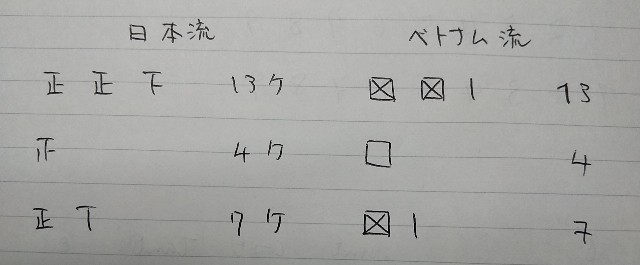 日本流 ベトナム流
正 正 下 13ケ 13
正 4ケ 4
正 丅 7ケ 7